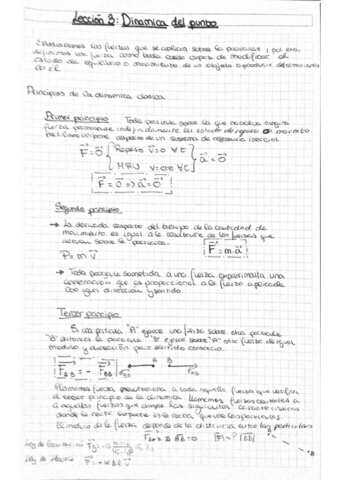 Lección 3: Dinamica del punto
Estudiaremos las fuerzas que se aplican sobre la particula, por eso,
definimos una fuerza como toda causa capaz de modificar el
estado de equilibrio o movimiento de un objeto o producir deformaciones
en el.
Principios de la dinamica clasica
Primer principio: Toda particula sobre la que no actua ninguna
fuerza permanece indefinidamente en estado de reposo o movimiento
rectilineo uniforme respecto de un sistema de referencia inercial
F⃗=0⃗ { Reposo v⃗=0 ∀t
MRU v=cte ∀t } a⃗=0⃗
F⃗=0 ⟹ a⃗=0⃗
Segundo principio:
→ La derivada respecto del tiempo de la cantidad de
movimiento es igual a la resultante de las fuerzas que
actuan sobre la particula.
F⃗=m·a⃗
P=m v⃗
→ Toda particula sometida a una fuerza experimenta una
aceleracion que es proporcional a la fuerza aplicada
con igual direccion y sentido.
Tercer principio
Si una particula "A" ejerce una fuerza sobre otra particula
"B" entonces la particula "B" ejerce sobre "A" otra fuerza de igual
modulo y direccion pero sentido contrario.
A B
Llamamos fuerza newtoniana a toda aquella fuerza que verifica
el tercer principio de la dinamica. Llamamos fuerzas centrales a
aquellas fuerzas que cumplen las siguientes caracteristicas
donde la recto soporte es la recta que une las particulas
El modulo de la fuerza depende de la distancia entre las particulas
Ley de
Ley de